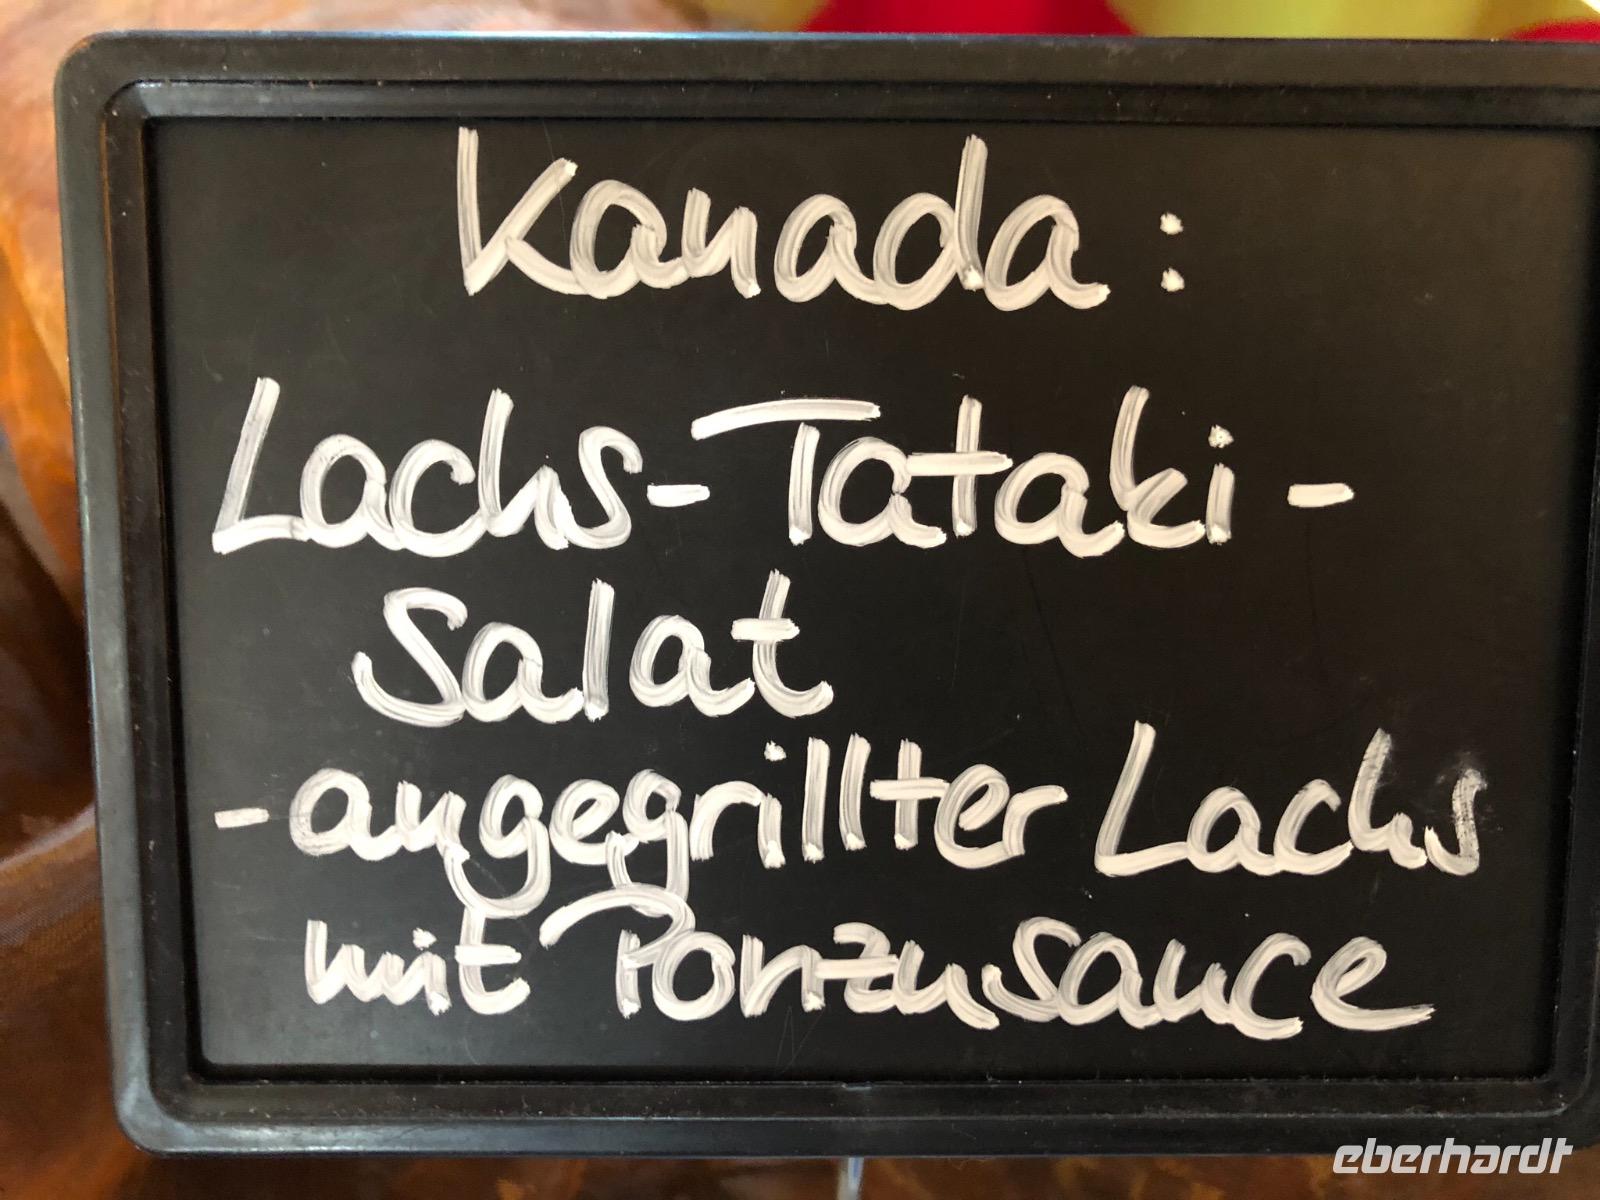 Kanada:
Lachs-Tataki-
Salat
-angegrillter Lachs
mit Ponzusauce
eberhardt